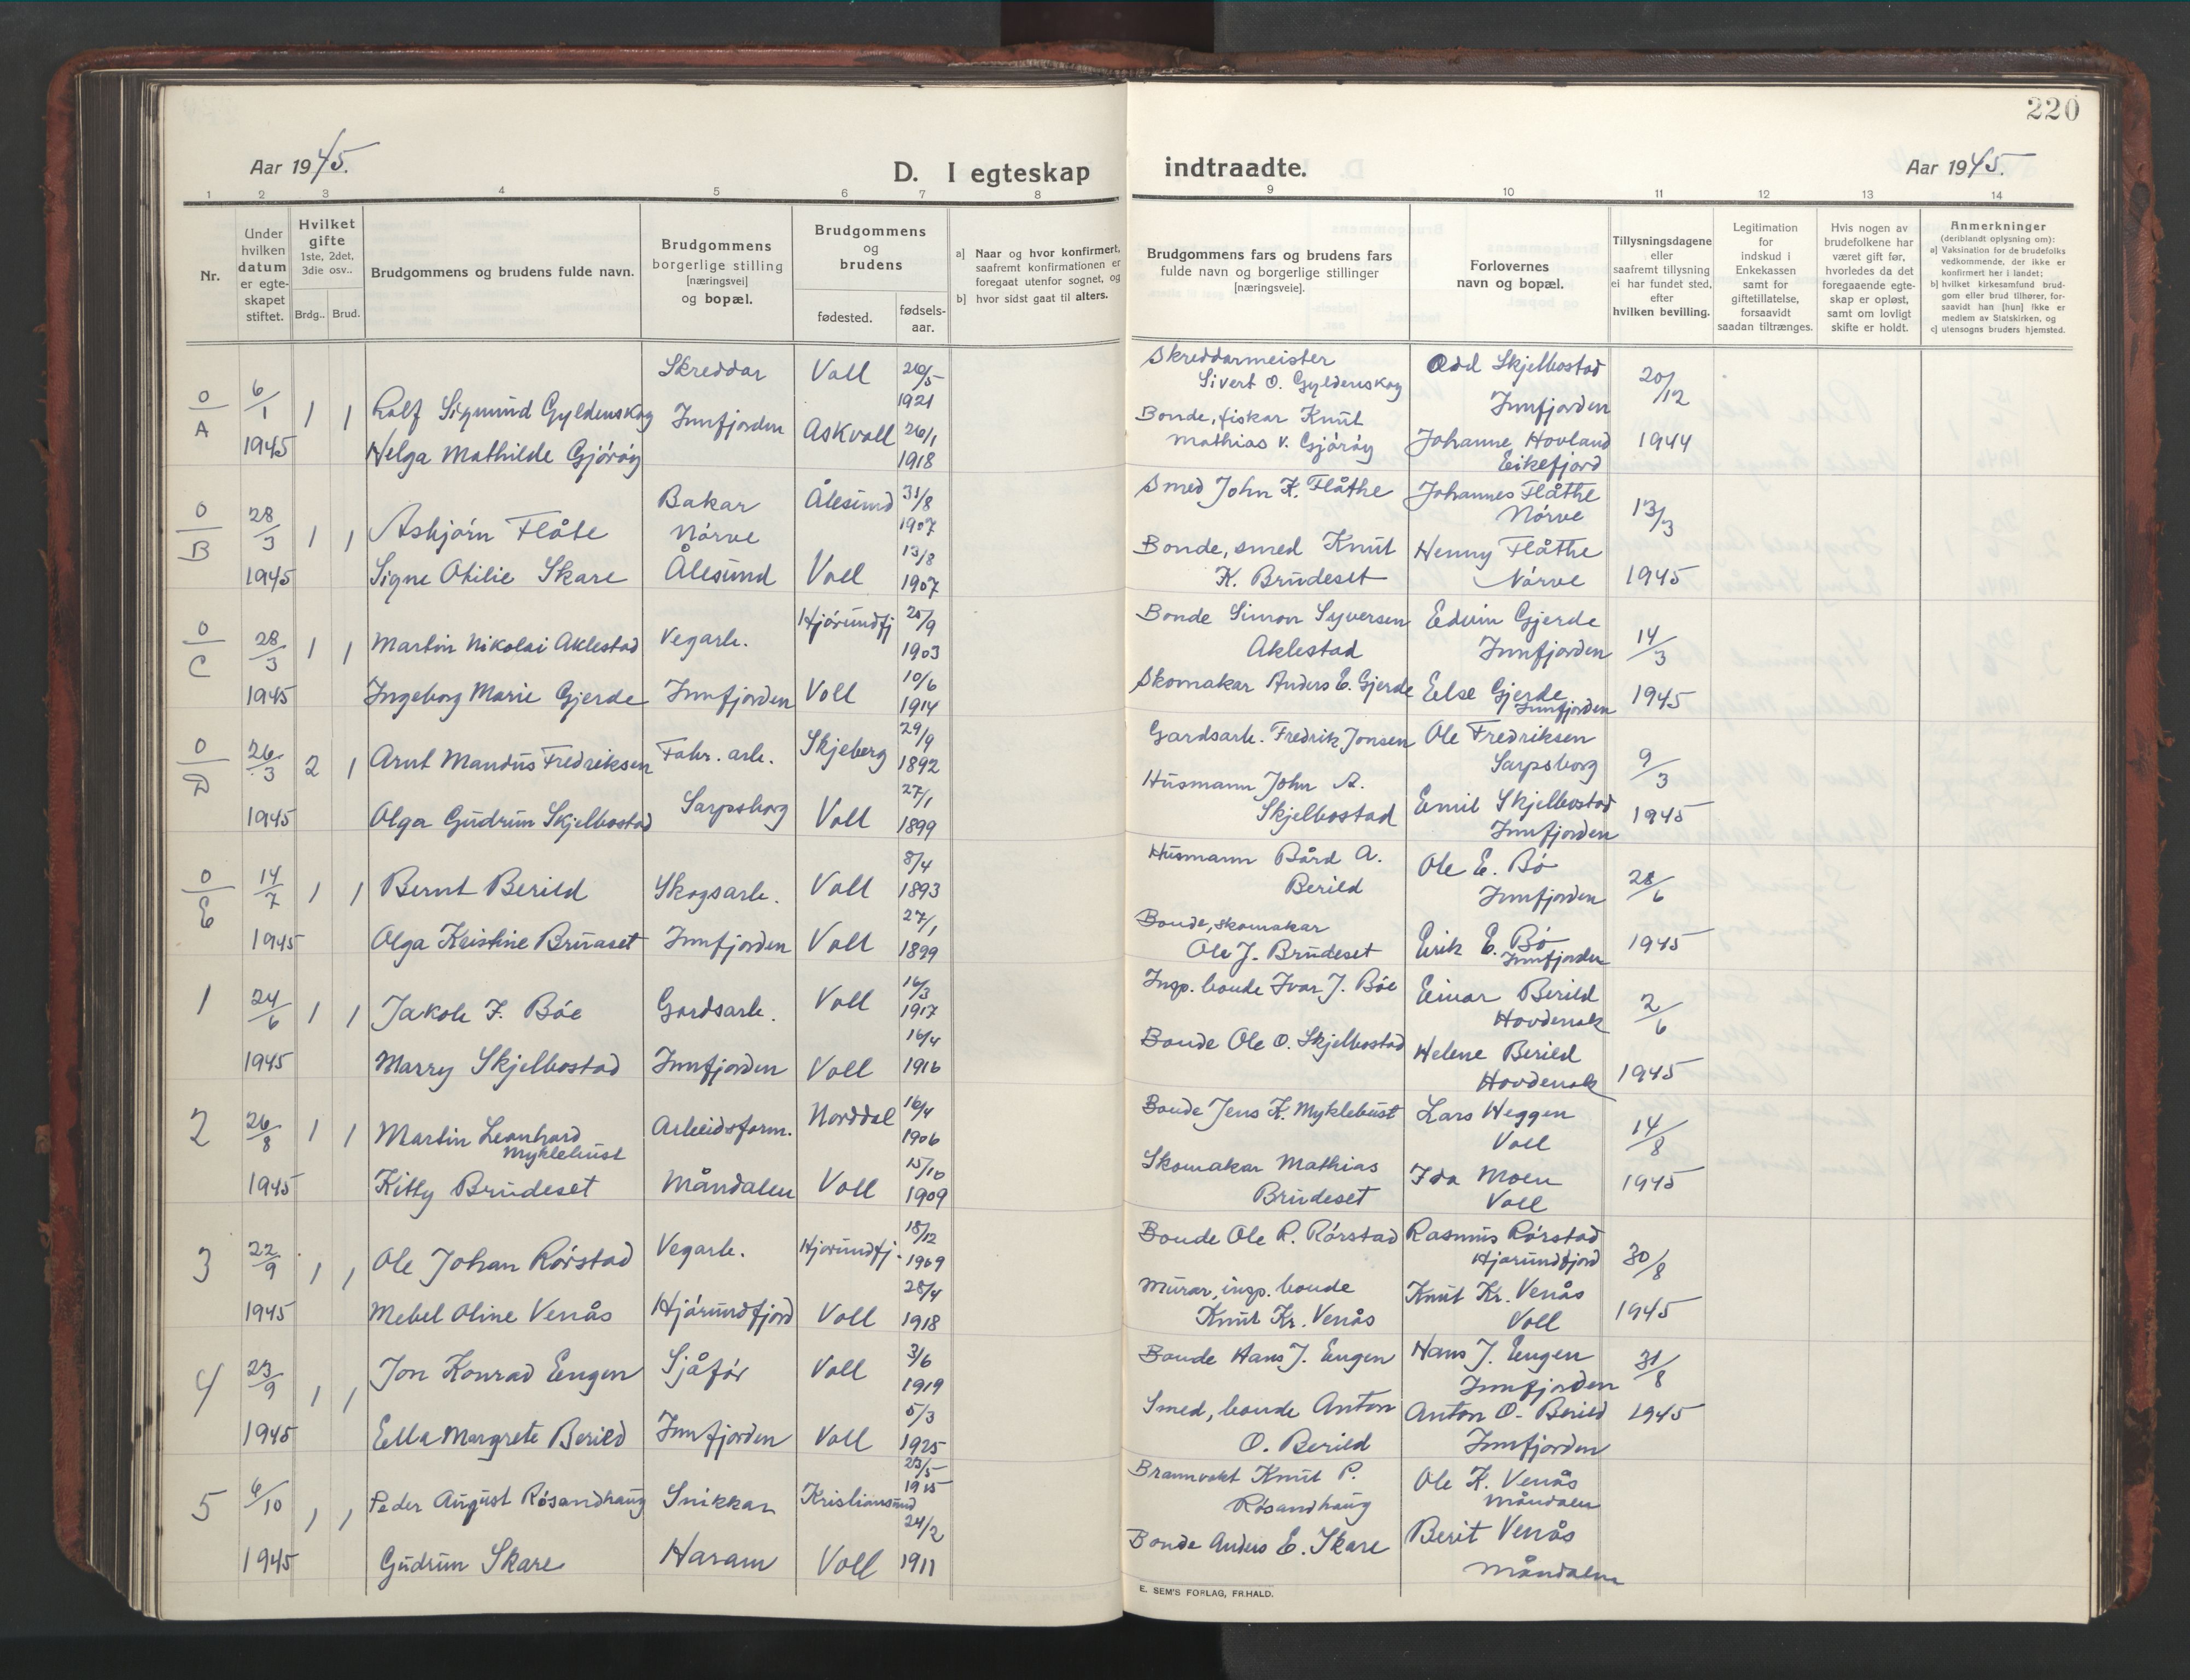 220
Aar 1945.
D. I egteskap indtraadte.
Aar 1945.
1 2 3 4 5 6 7 8 9 10 11 12 13 14
Nr.
Under hvilken datum er egte-skapet stiftet.
Hvilket gifte 1ste, 2det, 3die osv..
Brdg.. Brud.
Brudgommens og brudens fulde navn.
Brudgommens borgerlige stilling [næringsvei] og bopæl.
Brudgommens og brudens
fødested.
fødsels-aar.
a] Naar og hvor konfirmert, saafremt konfirmationen er foregaat utenfor sognet, og
b] hvor sidst gaat til alters.
Brudgommens fars og brudens fars fulde navn og borgerlige stillinger [næringsveie].
Forlovernes navn og bopæl.
Tillysningsdagene eller saafremt tillysning ei har fundet sted, efter hvilken bevilling.
Legitimation for indskud i Enkekassen samt for giftetillatelse, forsaavidt saadan tiltrænges.
Hvis nogen av brudefolkene har været gift før, hvorledes da det foregaaende egte-skap er opløst, samt om lovligt skifte er holdt.
Anmerkninger (deriblandt oplysning om):
a] Vaksination for de brudefolks vedkommende, der ikke er konfirmert her i landet;
b] hvilket kirkesamfund brud-gom eller brud tilhører, for-saavidt han [hun] ikke er medlem av Statskirken, og
c] utensogns bruders hjemsted.
0/A 6/1 1945 1 1
Rolf Sigmund Gyldenskog
Helga Mathilde Gjörøy
Skreddar
Innfjorden
Voll 20/5 1921
Askvoll 26/1 1918
Skreddarmeister
Sivert O. Gyldenskog
Bonde, fiskar Knut
Mathias V. Gjörøy
Odd Skjelbostad
Innfjorden
Johanne Hovland
Eikefjord
20/12 1944
0/B 28/3 1945 1 1
Asbjörn Flåte
Signe Otilie Skare
Bakar
Nörve
Ålesund
Ålesund 31/8 1907
Voll 13/8 1907
Smed John K. Flåthe
Bonde, smed Knut
K. Brudeset
Johannes Flåthe
Nörve
Henny Flåthe
Nörve
13/3 1945
0/C 28/3 1945 1 1
Martin Nikolai Aklestad
Ingeborg Marie Gjerde
Vegarb.
Innfjorden
Hjörundfj 20/9 1903
Voll 10/6 1914
Bonde Simon Syversen
Aklestad
Skomakar Anders E. Gjerde
Edvin Gjerde
Innfjorden
Else Gjerde
Innfjorden
14/3 1945
0/D 26/3 1945 2 1
Arnt Mandus Fredriksen
Olga Gudrun Skjelbostad
Fabr. arb.
Sarpsborg
Skjeberg 29/9 1892
Voll 27/1 1899
Gardsarb. Fredrik Jonsen
Husmann John A.
Skjelbostad
Ole Fredriksen
Sarpsborg
Emil Skjelbostad
Innfjorden
9/3 1945
0/E 14/7 1945 1 1
Bernt Berild
Olga Kristine Bruaset
Skogsarb.
Innfjorden
Voll 8/4 1893
Voll 27/1 1899
Husmann Bård A.
Berild
Bonde, skomakar
Ole J. Brudeset
Ole E. Bö
Innfjorden
Erik E. Bö
Innfjorden
28/6 1945
1 24/6 1945 1 1
Jakob I. Böe
Marry Skjelbostad
Gardsarb.
Innfjorden
Voll 16/3 1917
Voll 16/4 1916
Insp. bonde Ivar J. Böe
Bonde Ole O. Skjelbostad
Einar Berild
Hovdenak
Helene Berild
Hovdenak
2/6 1945
2 26/8 1945 1 1
Martin Leonhard
Myklebust
Kitty Brudeset
Arbeidsform.
Måndalen
Norddal 16/4 1906
Voll 15/10 1909
Bonde Jens K. Myklebust
Skomakar Mathias
Brudeset
Lars Heggen
Voll
Ida Moen
Voll
14/8 1945
3 22/9 1945 1 1
Ole Johan Rörstad
Mebel Oline Venås
Vegarb.
Hjörundfjord
Hjörundfj. 18/12 1909
Voll 28/4 1918
Bonde Ole R. Rörstad
Murar, insp. bonde
Knut Kr. Venås
Rasmus Rörstad
Hjörundfjord
Knut Kr. Venås
Voll
30/8 1945
4 23/9 1945 1 1
Jon Konrad Engen
Ella Margrete Berild
Sjåför
Innfjorden
Voll 3/6 1919
Voll 5/3 1925
Bonde Hans J. Engen
Smed, bonde Anton
O. Berild
Hans J. Engen
Innfjorden
Anton O. Berild
Innfjorden
31/8 1945
5 6/10 1945 1 1
Peder August Rösandhaug
Gudrun Skare
Snikkar
Haram
Kristiansund 23/5 1915
Voll 24/2 1911
Brannvakt Knut P.
Rösandhaug
Bonde Anders E. Skare
Ole K. Venås
Måndalen
Berit Venås
Måndalen
E. SEM'S FORLAG, FR.HALD.